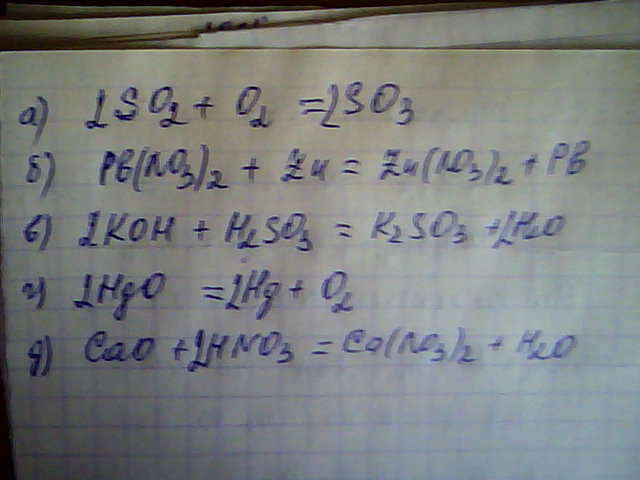 а) 2SO₂ + O₂ = 2SO₃
б) Pв(NO₃)₂ + Zn = Zn(NO₃)₂ + Pв
в) 2KOH + H₂SO₃ = K₂SO₃ + 2H₂O
г) 2HgO = 2Hg + O₂
д) CaO + 2HNO₃ = Ca(NO₃)₂ + H₂O